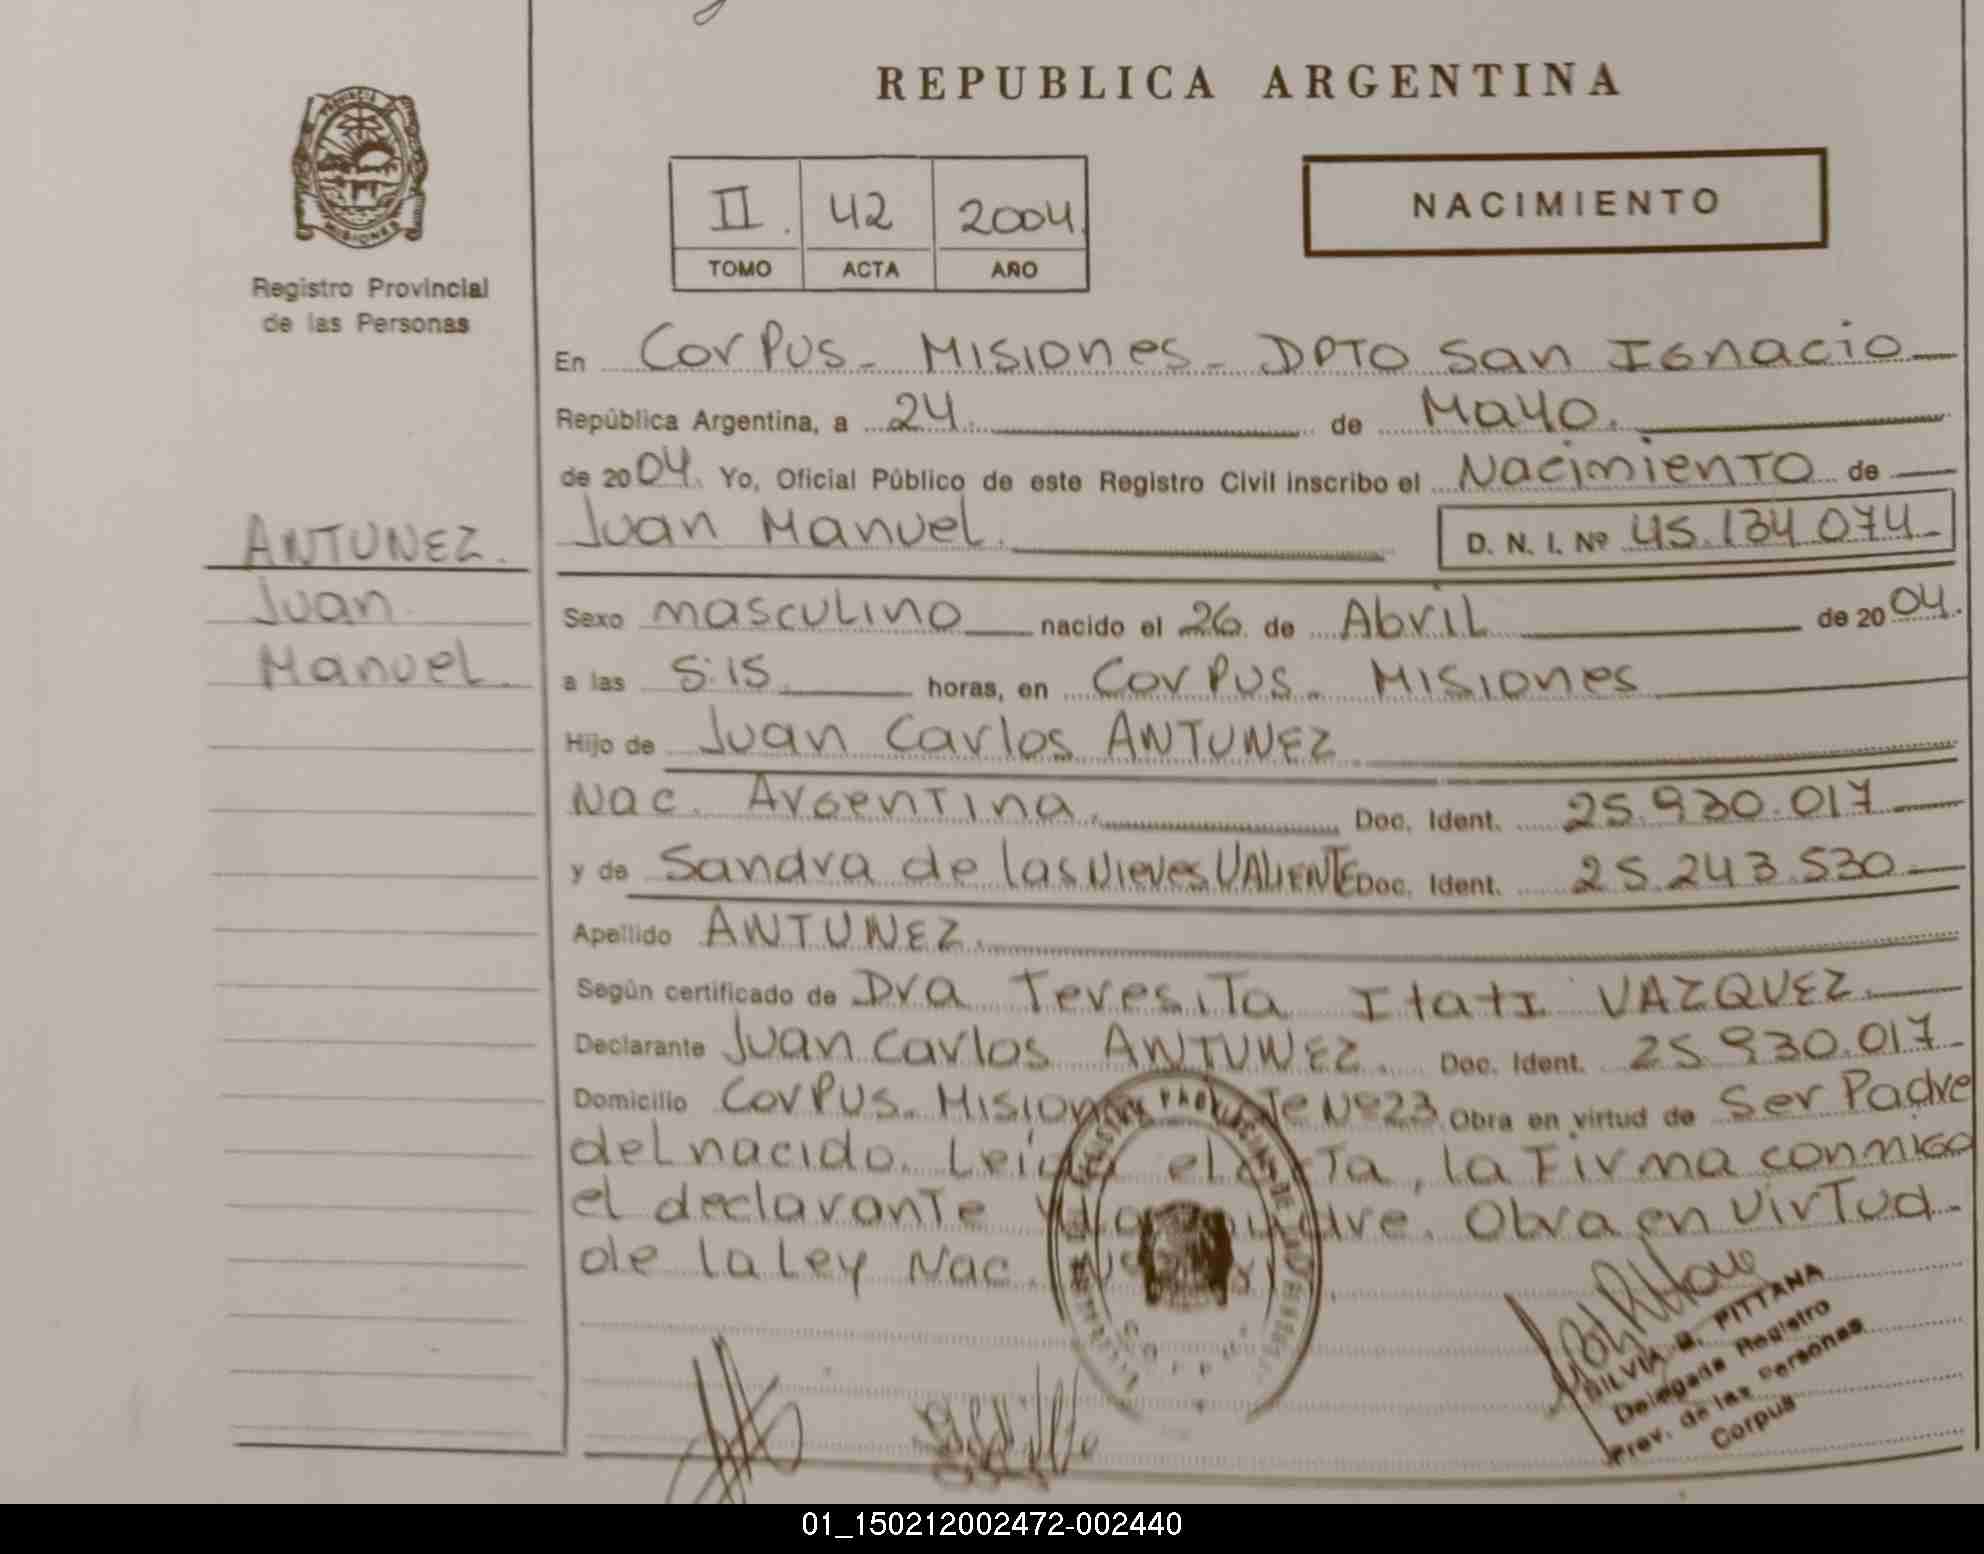 REPUBLICA ARGENTINA
PROVINCIA
MISIONES
Registro Provincial
de las Personas
II. 42 2004.
TOMO ACTA AÑO
NACIMIENTO
En Corpus - Misiones - DPTO San Ignacio
República Argentina, a 24. de Mayo.
de 2004. Yo, Oficial Público de este Registro Civil inscribo el Nacimiento de
ANTUNEZ.
Juan
Manuel.
Juan Manuel. D. N. I. Nº 45.134.074
Sexo masculino nacido el 26 de Abril de 2004.
a las 5:15 horas, en Corpus - Misiones
Hijo de Juan Carlos ANTUNEZ
Nac. Argentina. Doc. Ident. 25.930.017
y de Sandra de las Nieves VALIENTE Doc. Ident. 25.243.530
Apellido ANTUNEZ.
Según certificado de Dra Teresita Itati VAZQUEZ.
Declarante Juan Carlos ANTUNEZ. Doc. Ident. 25.930.017
Domicilio Corpus - Misiones Nº 23 Obra en virtud de Ser Padre
del nacido. Leída el acta, la Firma conmigo
el declarante y la madre. Obra en virtud
de la Ley Nac.
SILVIA B. PITTANA
Delegada Registro
Prov. de las Personas
Corpus
01_150212002472-002440